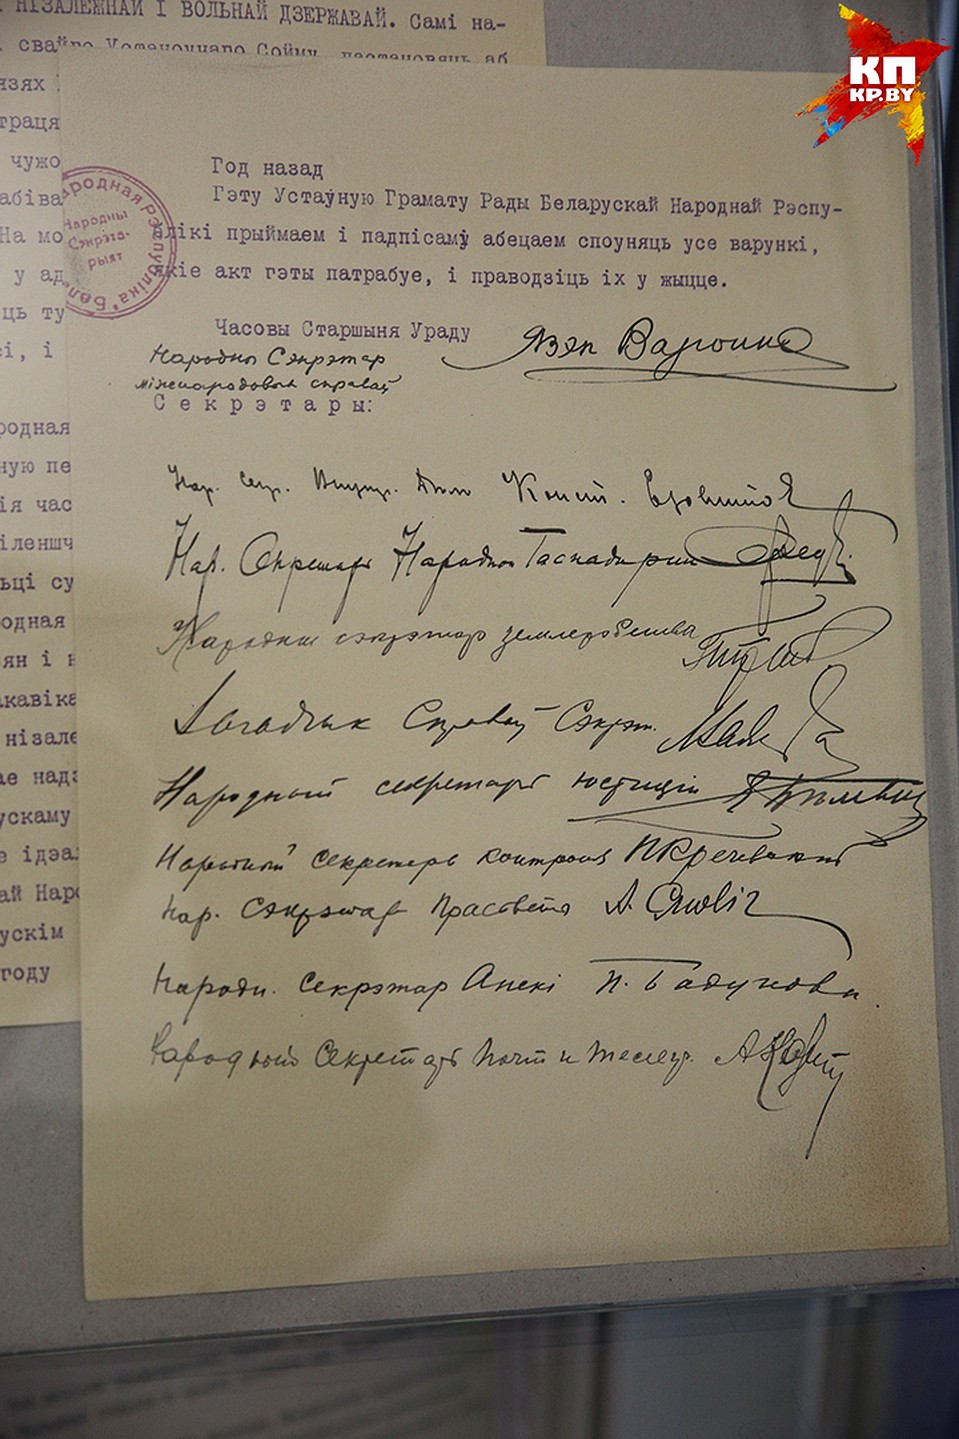 НІЗАЛЕЖНАЙ І ВОЛЬНАЙ ДЗЕРЖАВАЙ. Самі на-
свайго Устаноўчаго Сойму, пастановяць аб
язях
траця
чужо
абіва
На мо
у ад
ць ту
сі, і
родная
ную пе
ія час
іленшч
ьці су
одная
ян і н
акавіка
нізале
ае надз
ускаму
е ідэал
ай Наро
ускім
году
КП
KP.BY
Народны
Сэкрэта-
рыят
Год назад
Гэту Устаўную Грамату Рады Беларускай Народнай Рэспу-
блікі прыймаем і падпісамў абецаем споуняць усе варункі,
якіе акт гэты патрабуе, і праводзіць іх у жыцце.
Часовы Старшыня Ураду Язэп Варонко
Народны Сэкрэтар
міжнародовых справаў
Секрэтары:
Нар. Секр. Внутр. Дѣлъ Конст. Езовитов
Нар. Секретарь Народной Гаспадаркі
Народны сэкрэтар земляробства
Загадчык Справаў Сэкрэт.
Народный секретарь юстиціи
Народный Секретарь контроля П Кречевскій
Нар. Сэкрэтар Прасветы А. Смоліч
Народн. Секрэтар Апекі П. Бадунова
Народный Секретарь Почт и Телегр. А Карач